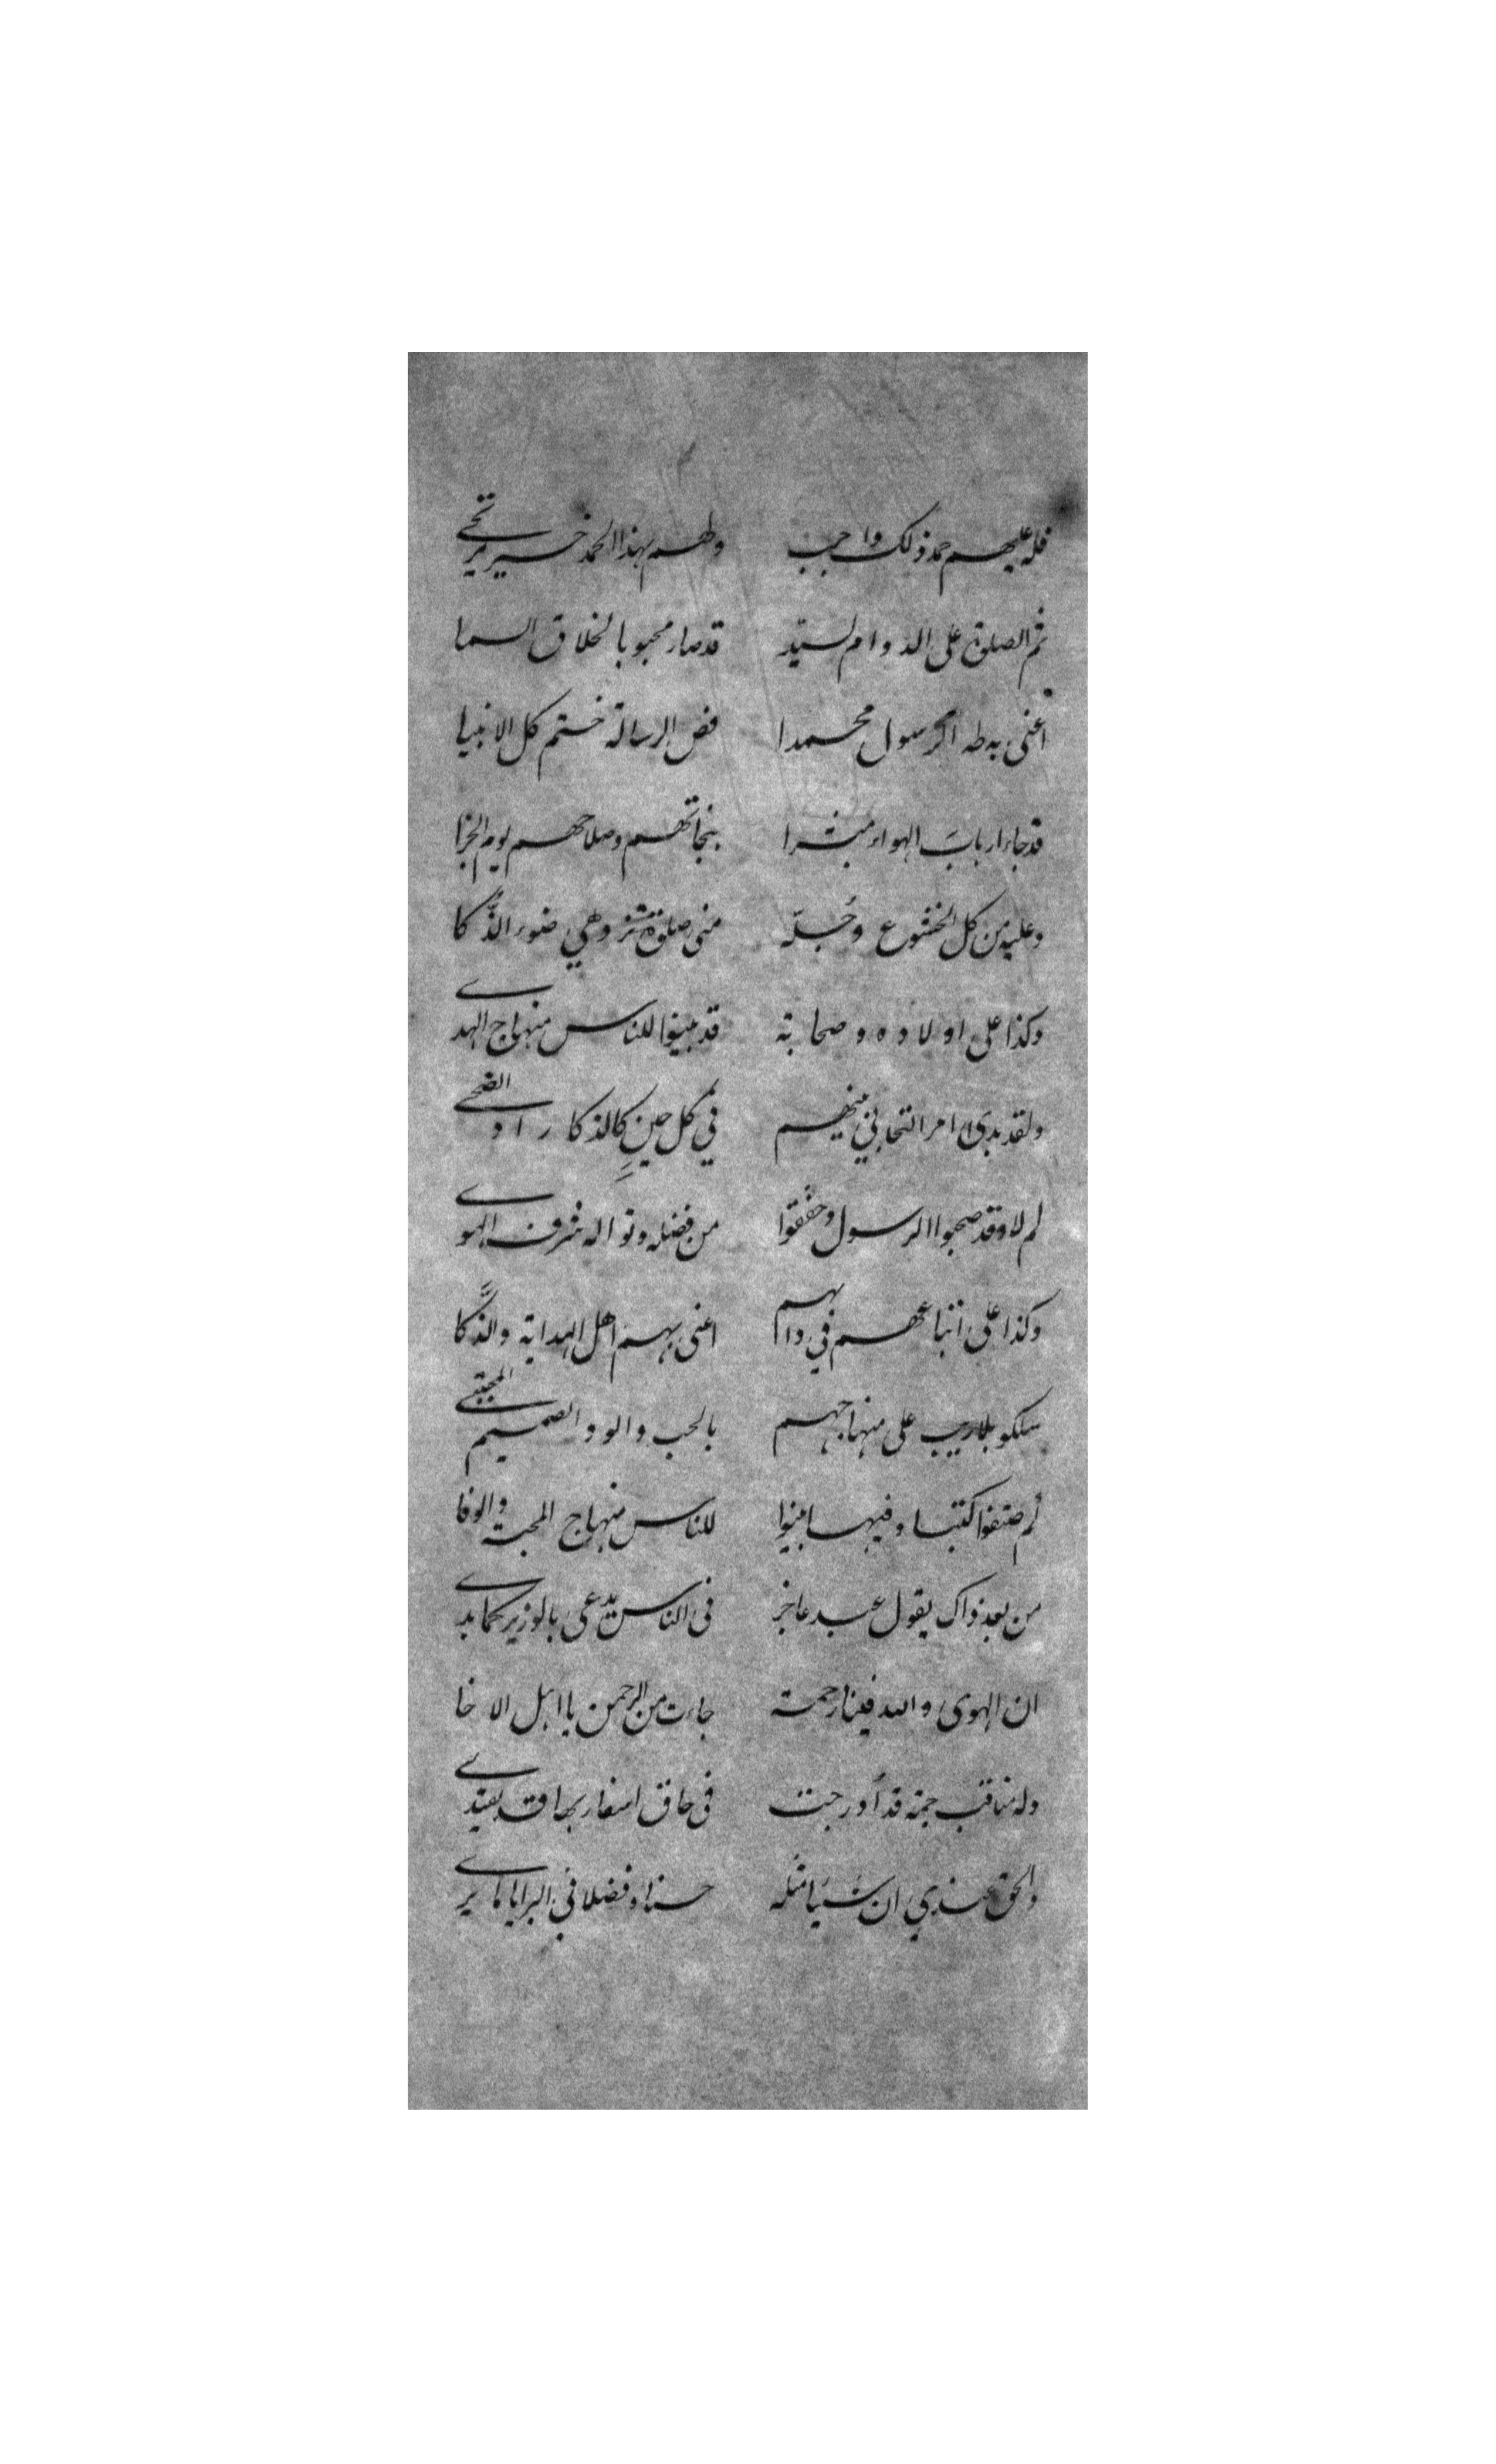 فله عليهم حمد ذلك واجب ولهم بهذا الحمد خير يرتجى
ثم الصلوة على الدوام لسيّد قد صار محبوبا لخلاق السما
اعنى به طه الرسول محمدا فص الرسالة ختم كل الانبيا
قد جاء ارباب الهواء مبشرا بنجاتهم وصلاحهم يوم الجزا
وعليه من كل الخشوع وجُلّه منى صلوة وهي ضوء الذُّكا
وكذا على اولاده وصحابة قد بينوا للناس منهاج الهدى
ولقد بدى امر التحابي بينهم في كل حينٍ كالذكا راد الضحى
لم لا وقد صحبوا الرسول وحققوا من فضله ونواله شرف الهوى
وكذا على اتباعهم في دابهم اعنى بهم اهل الهداية والذَّكا
سلكو بلاريب على منهاجهم بالحب والود الصميم المجتبى
لم صنفوا كتبا وفيها بينوا للناس منهاج المحبة والوفا
من بعد ذاك يقول عبد عاجز فى الناس يدعى بالوزير كما بدى
ان الهوى والله فينا رحمة جاءت من الرحمن يا اهل الاخا
وله مناقب جمة قد أدرجت فى حاق اسفار بها قد يقتدى
والحق عندي ان شيَا مثله حسنا وفضلا في البرايا ما يرى